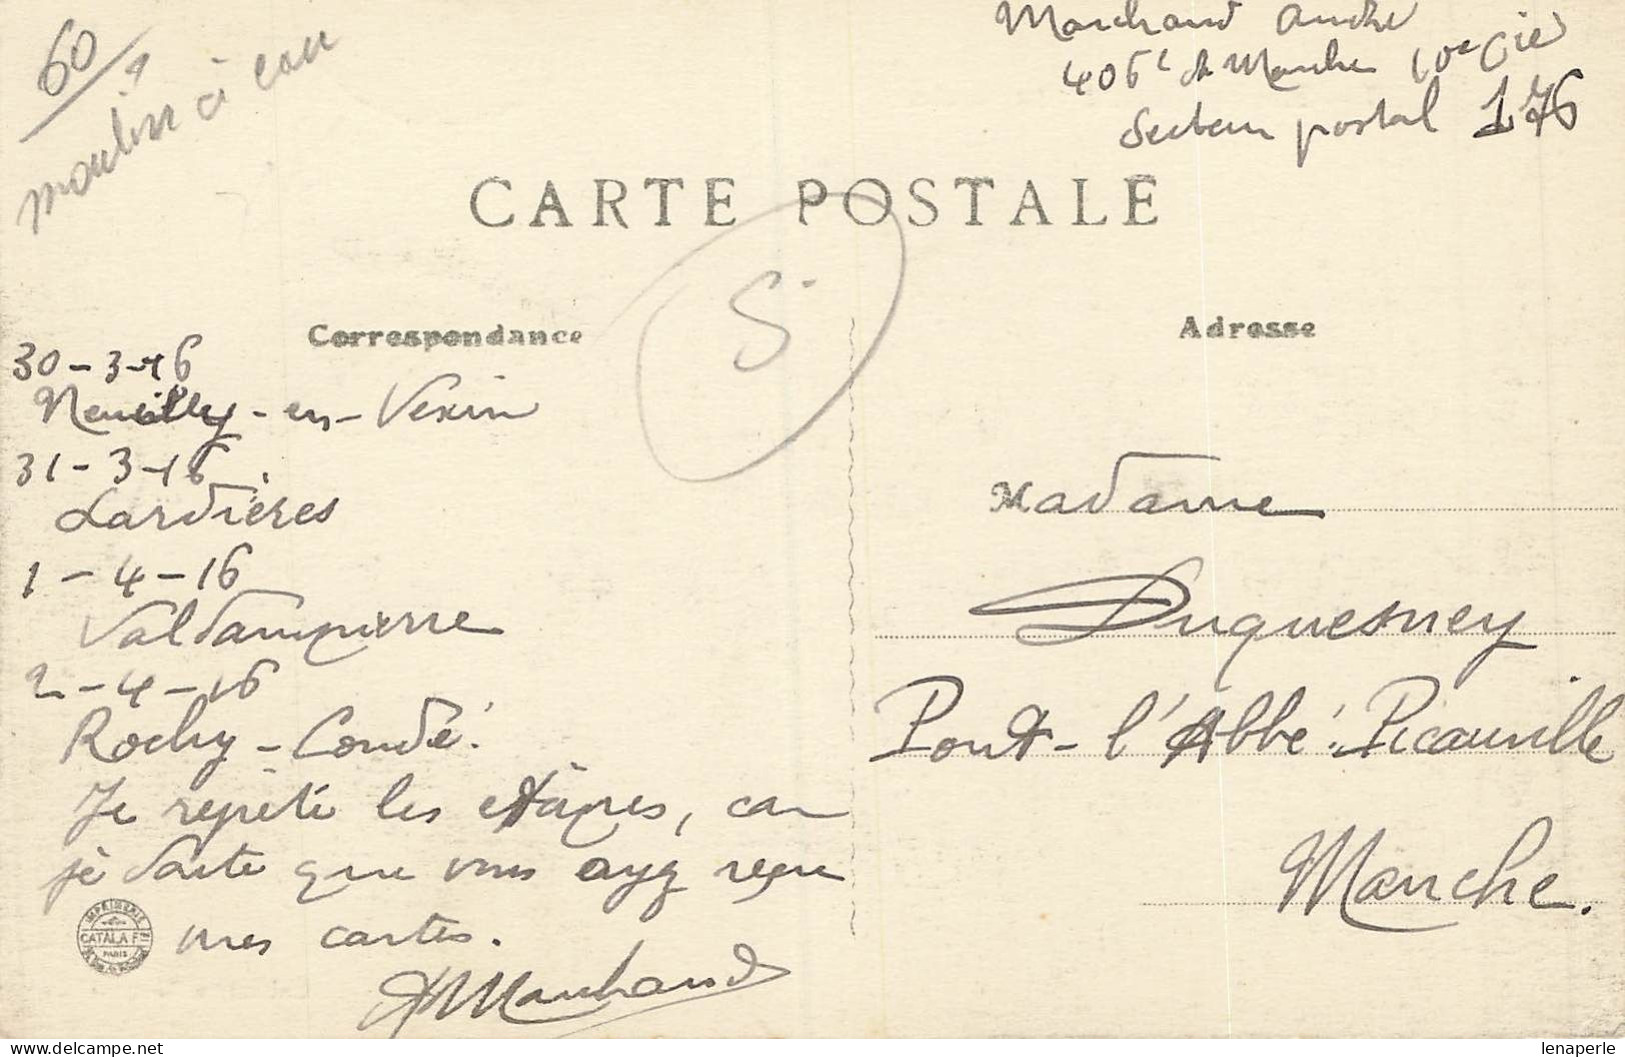 60
moulin à eau
Marchand André
406e de Marche 10e Cie
Secteur postal 176
CARTE POSTALE
S
Correspondance
Adresse
30-3-16
Neuilly-en-Vexin
31-3-16
Lardières
1-4-16
Valdampierre
2-4-16
Rochy-Condé.
Je répète les étapes, car
je doute que vous ayez reçu
mes cartes.
AMarchand
IMPRIMERIE
CATALA Fres
PARIS
Madame
Duquesney
Pont-l'Abbé-Picauville
Manche.
lenaperle